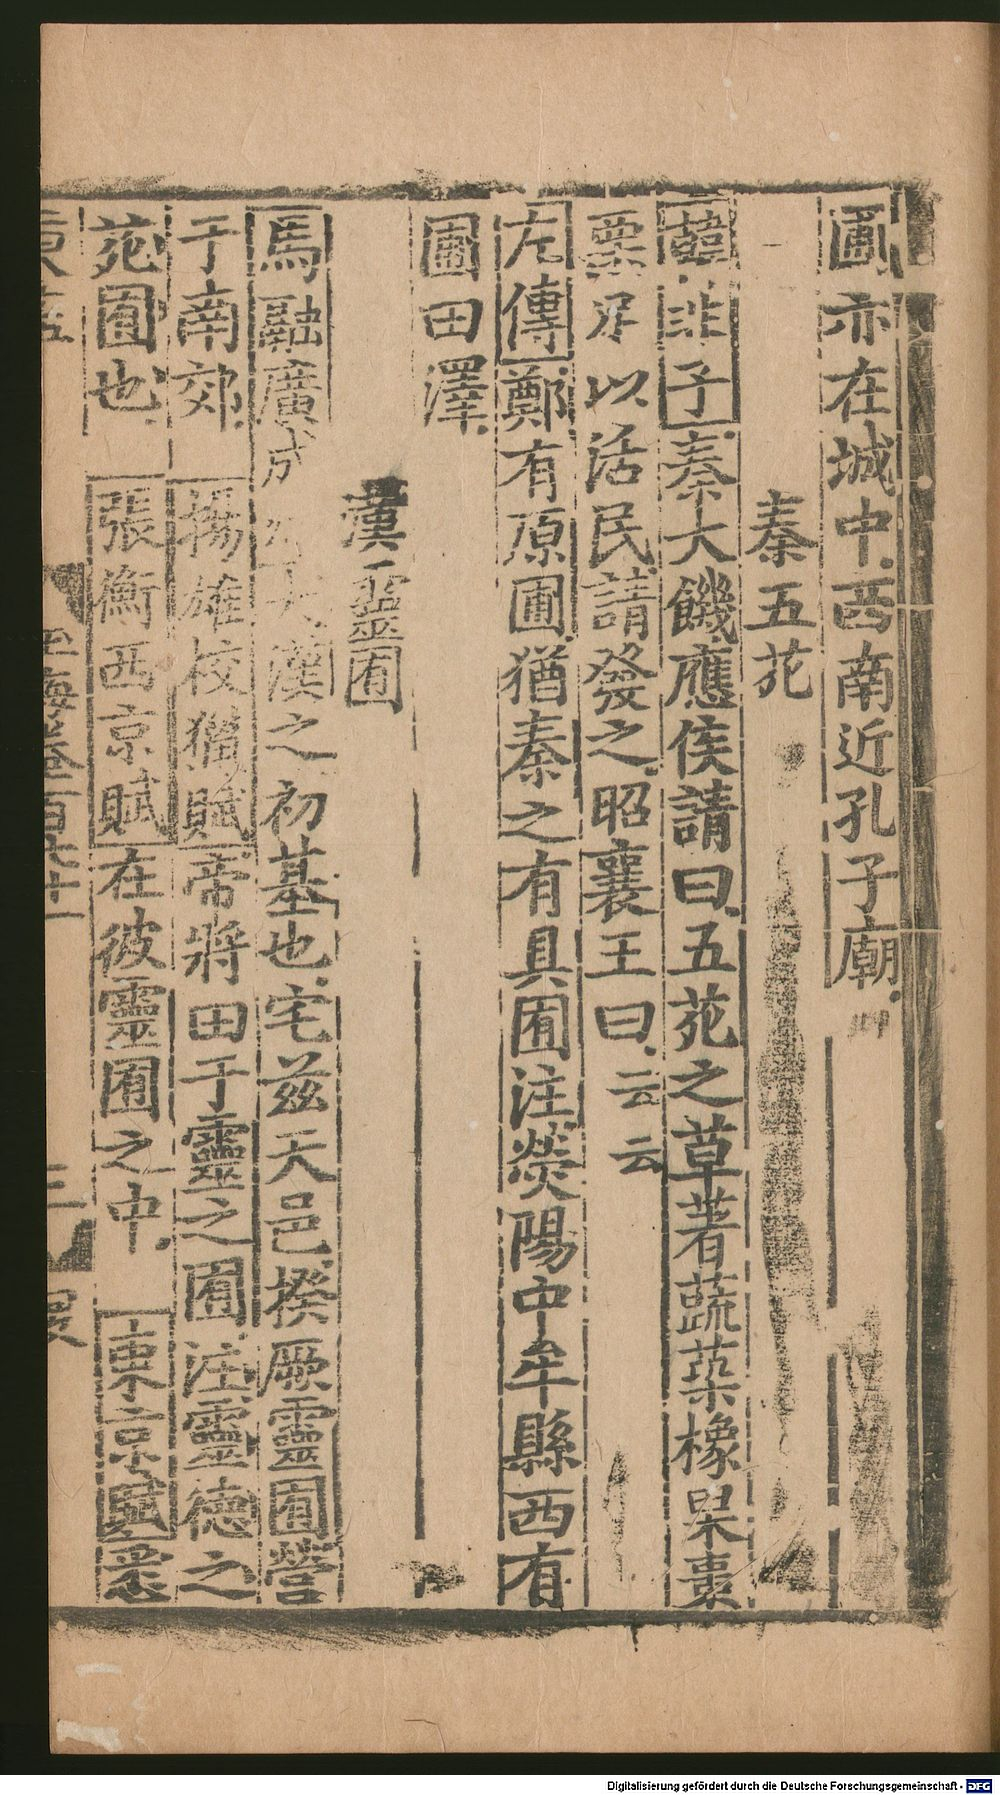 圃亦在城中西南近孔子廟
秦五苑
韓非子秦大饑應侯請曰五苑之草著蔬菜橡果棗
栗足以活民請發之昭襄王曰云云
左傳鄭有原圃猶秦之有具囿注滎陽中牟縣西有
圃田澤
漢靈囿
馬融廣成 大漢之初基也宅兹天邑揆厥靈囿營
于南郊 揚雄校獵賦帝將田于靈之囿注靈德之
苑囿也 張衡西京賦在彼靈囿之中 東京賦悉
玉海卷一百七十一 三
Digitalisierung gefördert durch die Deutsche Forschungsgemeinschaft - DFG